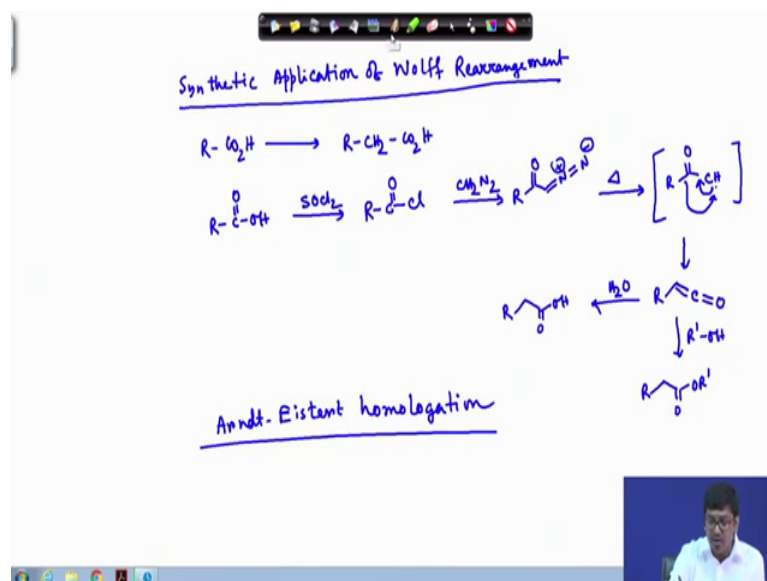 Synthetic Application of Wolff Rearrangement
R-CO2H ⟶ R-CH2-CO2H
R-C(=O)-OH SOCl2 ⟶ R-C(=O)-Cl CH2N2 ⟶ R O N⊕=N⊖ Δ ⟶ [R O CH]
R OH O H2O ⟵ R C=O
R'-OH
R OR' O
Arndt-Eistent homologation